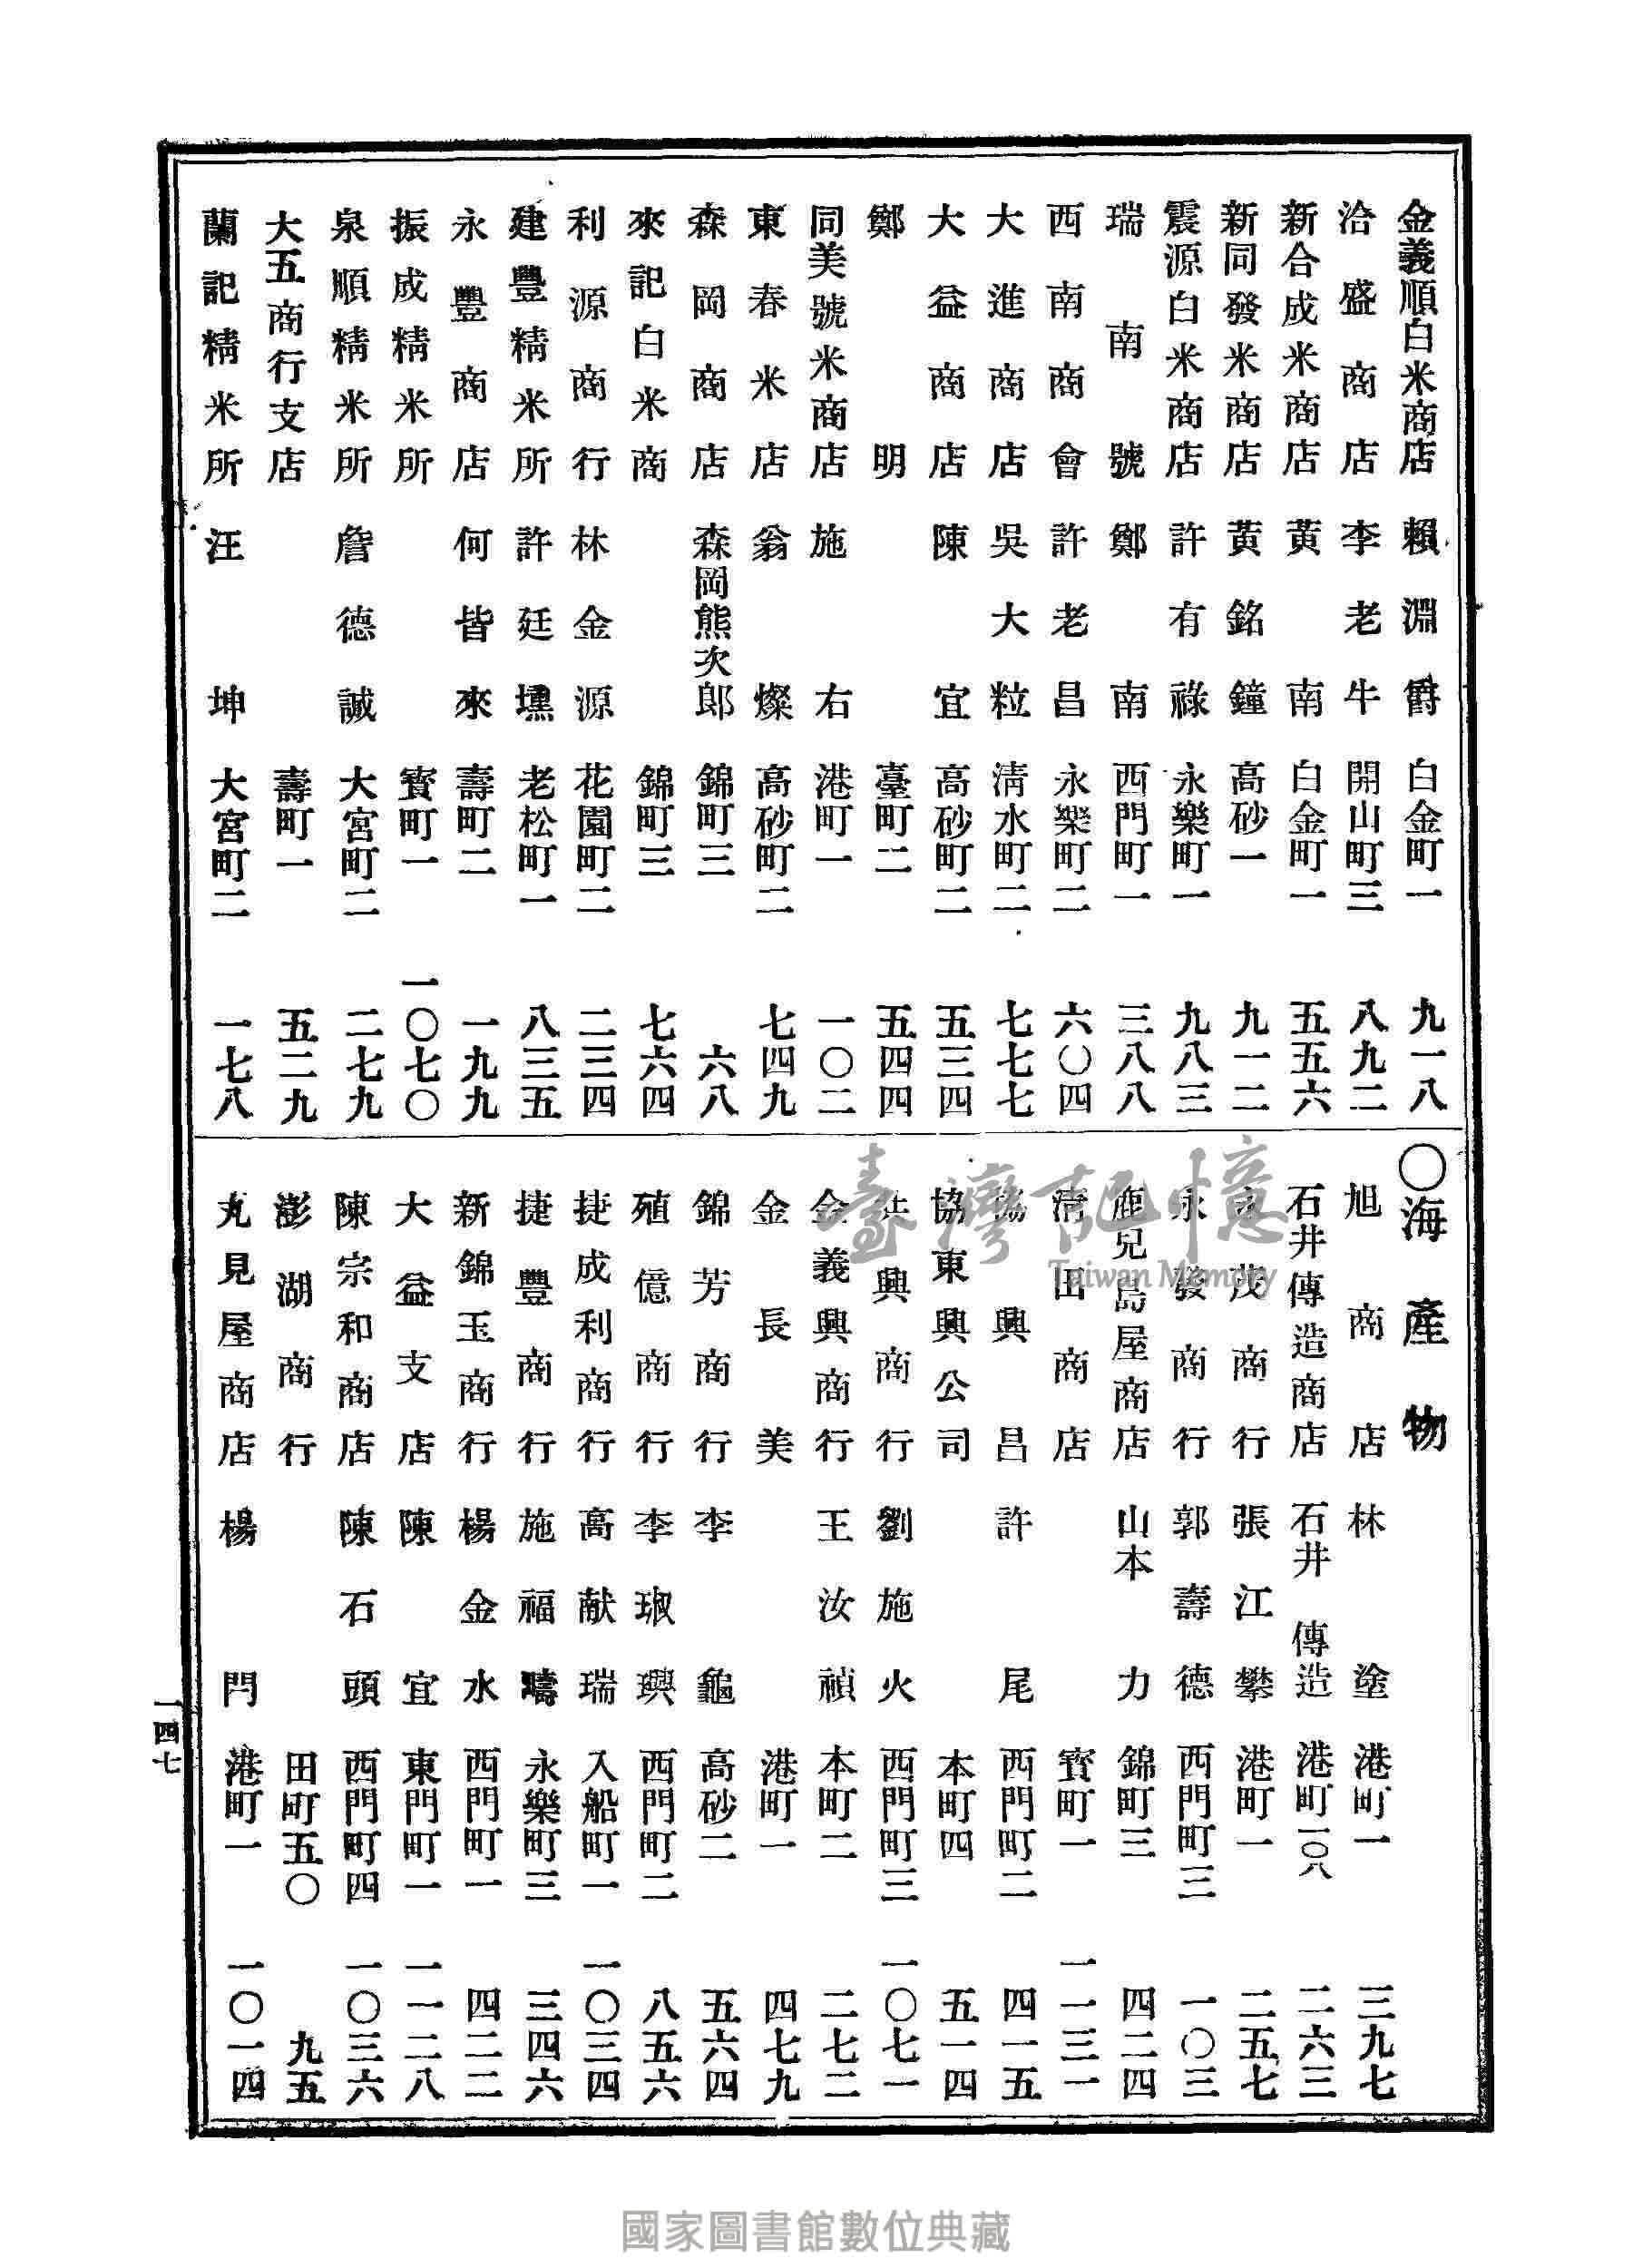 金義順白米商店 賴淵爵 白金町一 九一八
洽盛商店 李老牛 開山町三 八九二
新合成米商店 黃南 白金町一 五五六
新同發米商店 黃銘鐘 高砂一 九一二
震源白米商店 許有祿 永樂町一 九八三
瑞南號 鄭南 西門町一 三八八
西南商會 許老昌 永樂町二 六〇四
大進商店 吳大粒 清水町二 七七七
大益商店 陳宜 高砂町二 五三四
鄭明 臺町二 五四四
同美號米商店 施右 港町一 一〇二
東春米店 翁燦 高砂町二 七四九
森岡商店 森岡熊次郎 錦町三 六八
來記白米商 錦町三 七六四
利源商行 林金源 花園町二 二三四
建豐精米所 許廷壎 老松町一 八三五
永豐商店 何皆來 壽町二 一九九
振成精米所 寶町一 一〇七〇
泉順精米所 詹德誠 大宮町二 二七九
大五商行支店 壽町一 五二九
蘭記精米所 汪坤 大宮町二 一七八
〇海產物
旭商店 林塗 港町一 三九七
石井傳造商店 石井傳造 港町一〇八 二六三
永茂商行 張江攀 港町一 二五七
永發商行 郭壽德 西門町三 一〇三
鹿兒島屋商店 山本力 錦町三 四二四
清田商店 寶町一 一一三一
協興昌 許尾 西門町二 四一五
協東興公司 本町四 五一四
興商行 劉施火 西門町三 一〇七一
金義興商行 王汝禎 本町二 二七二
金長美 港町一 四七九
錦芳商行 李龜 高砂二 五六四
殖億商行 李琡璵 西門町二 八五六
捷成利商行 高献瑞 入船町一 一〇三四
捷豐商行 施福疇 永樂町三 三四六
新錦玉商行 楊金水 西門町一 四二二
大益支店 陳宜 東門町一 一一二八
陳宗和商店 陳石頭 西門町四 一〇三六
澎湖商行 田町五〇 九五
丸見屋商店 楊閂 港町一 一〇一四
一四七
臺灣記憶
Taiwan Memory
國家圖書館數位典藏